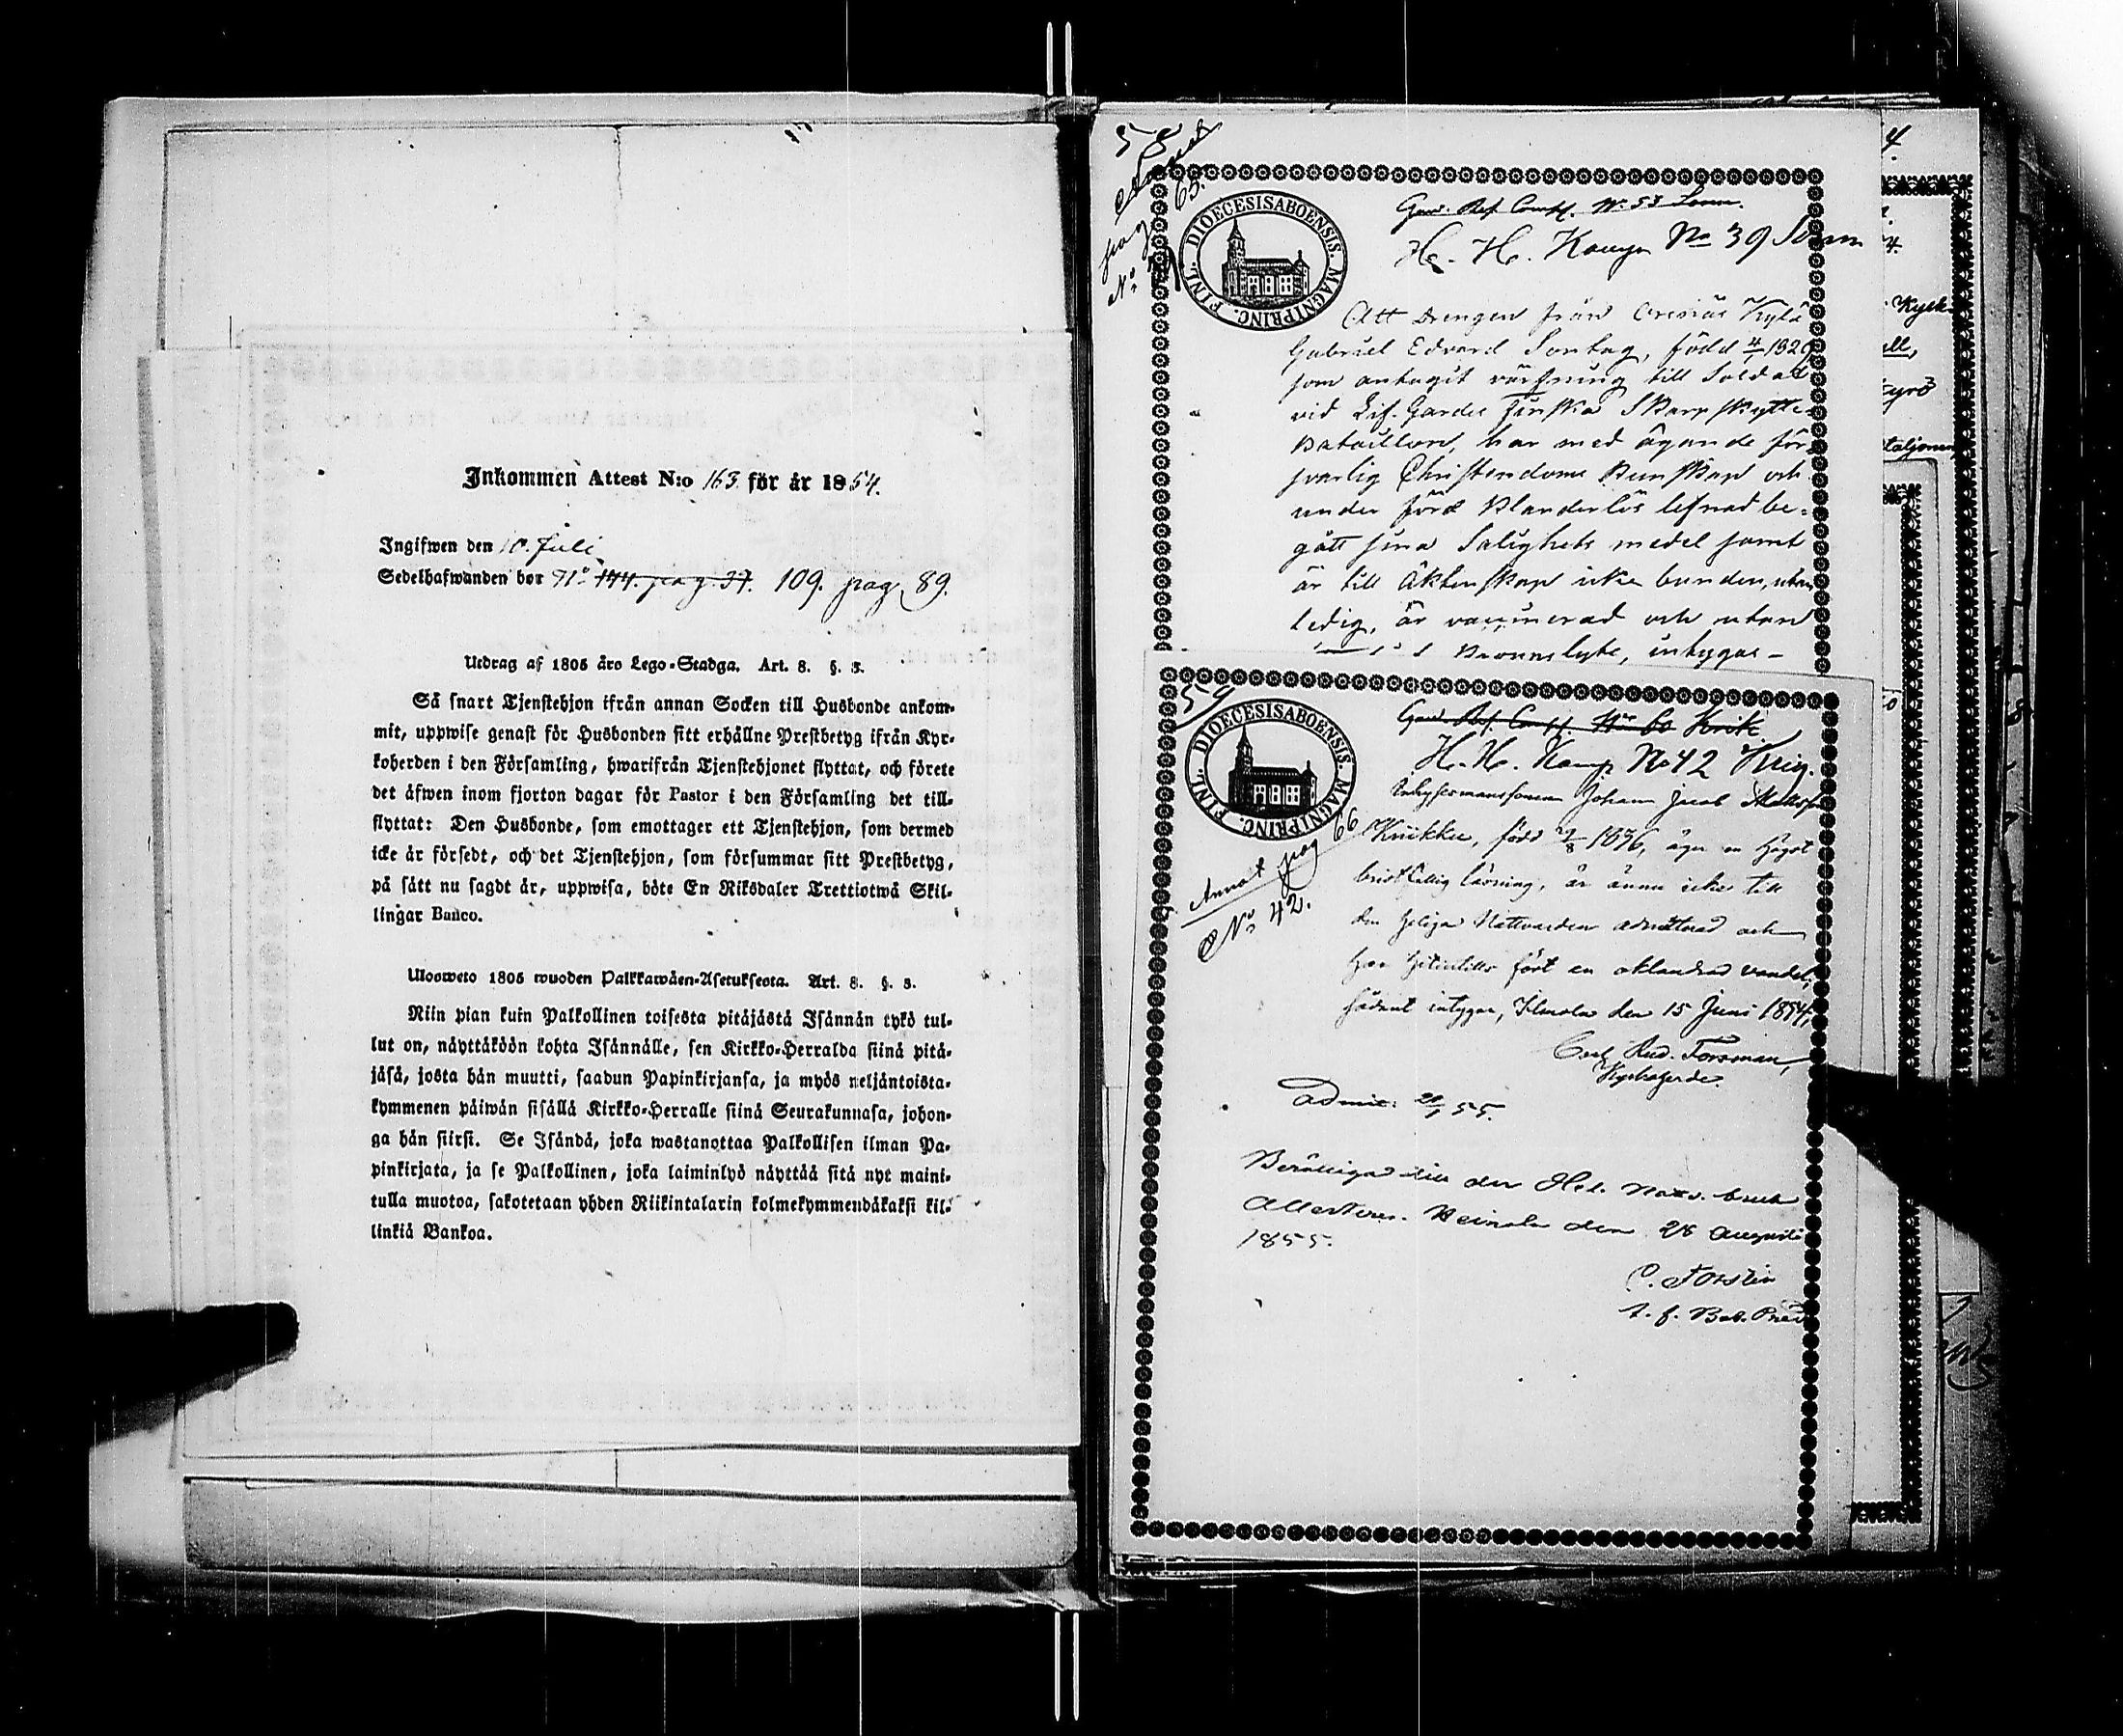 Inkommen Attest N:o 163. för år 1854.
Ingifwen den 10. Juli
Sedelhafwanden bor N:o 144. pag 37. 109. pag. 89.
Utdrag af 1805 års Lego-Stadga. Art. 8. §. 3.
Så snart Tjenstehjon ifrån annan Socken till Husbonde ankom-
mit, uppwise genast för Husbonden sitt erhållne Prestbetyg ifrån Kyr-
koherden i den Församling, hwarifrån Tjenstehjonet flyttat, och förete
det äfwen inom fjorton dagar för Pastor i den Församling det till-
flyttat: Den Husbonde, som emottager ett Tjenstehjon, som dermed
icke är försedt, och det Tjenstehjon, som försummar sitt Prestbetyg,
på sätt nu sagdt är, uppwisa, böte En Riksdaler Trettiotwå Skil-
lingar Banco.
Ulosweto 1805 wuoden Palkkawäen-Asetuksesta. Art. 8. §. 3.
Niin pian kuin Palkollinen toisesta pitäjästä Isännän tykö tul-
lut on, näyttäköön kohta Isännälle, sen Kirkko-Herralda siinä pitä-
jäsä, josta hän muutti, saadun Papinkirjansa, ja myös neljäntoista-
kymmenen päiwän sisällä Kirkko-Herralle siinä Seurakunnasa, johon-
ga hän siirsi. Se Isändä, joka wastanottaa Palkollisen ilman Pa-
pinkirjata, ja se Palkollinen, joka laiminlyö näyttää sitä nyt maini-
tulla muotoa, sakotetaan yhden Riikintalarin kolmekymmendäkaksi kil-
linkiä Bankoa.
58
65.
pag
N:o
DIOECESIS ABOENSIS. MAGNI PRINC. FINL.
Gard. Res. Comp. N:o 53
H. H. Kamp N:o 39
Att Drengen från Kylä
Gabriel Edvard Sontag, född 4/ 1820
som antagit värfning till Soldat
vid Lif-Gardes Finska Skarpskytte-
Bataillon, har med ägande för-
svarlig Christendoms Kunskap och
under förd Klanderlös lefnad be-
gått sina Salighets medel samt
är till Äktenskap icke bunden, utan
ledig, är vaccinerad och utan
Kroppslyte, intygas -
59
DIOECESIS ABOENSIS. MAGNI PRINC. FINL.
Gard. Res. Comp. N:o 60
H. H. Kamp N:o 42
Johann Jacob
född 1836, äger en högst
bristfällig läsning, är ännu icke till
den heliga Nattvarden admitterad och
har hitintills fört en oklandrad vandel,
sådant intygar, Ilmola den 15 Juni 1854,
Carl Rud. Forsman,
Kyrkoherde.
Annot pag 66
N:o 42.
Admit. 55.
Berättigad till den Hel. Nattv. bruk
Attesteras. Heinola den 26 Augusti
1855.
C. Forstén
t. f. Bat. Pred
4.
Kyrk-